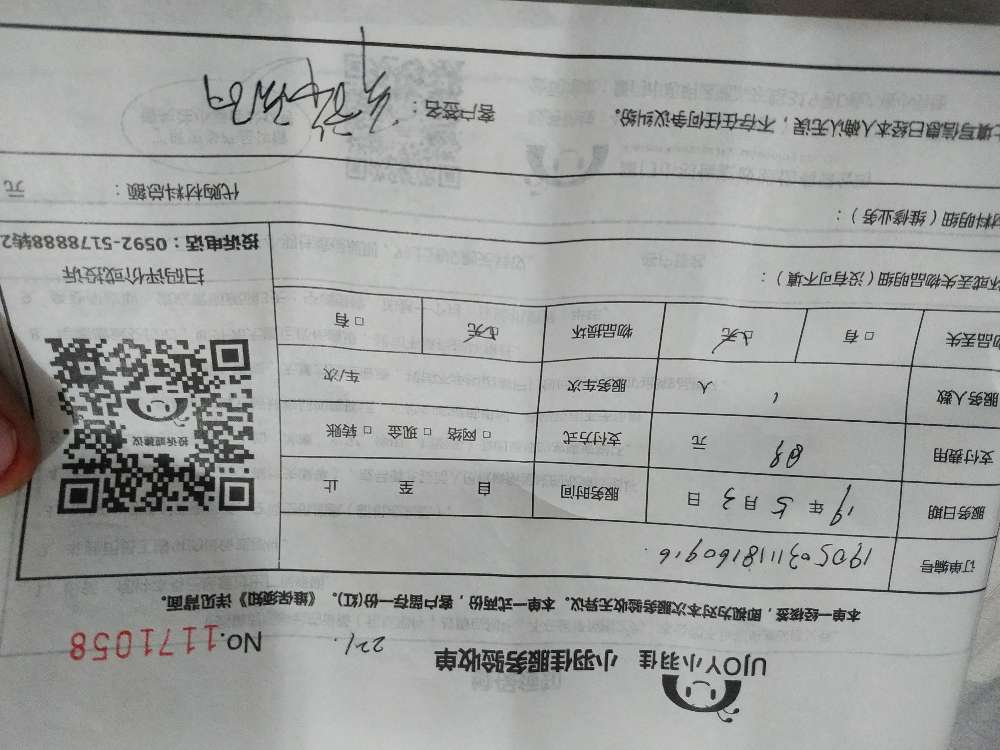 UJOY小羽佳 小羽佳服务验收单 221. No.1171058
本单一经核签，即视为对本次服务验收无异议。本单一式两份，客户留存一份(红)。《维保须知》详见背面。
订单编号 1905031118160916
服务日期 19年5月3日 服务时间 自 至 止
支付费用 元 支付方式 □网络 □现金 □转账
服务人数 1 人 服务车次 车/次
物品丢失 □有 ☑无 物品损坏 ☑无 □有
投诉或建议
扫码评价或投诉
投诉电话：0592-5178888转2
坏或丢失物品明细（没有可不填）：
材料明细（维修业务）： 代购材料总额： 元
填写信息已经本人确认无误，不存在任何争议纠纷。 客户签名：